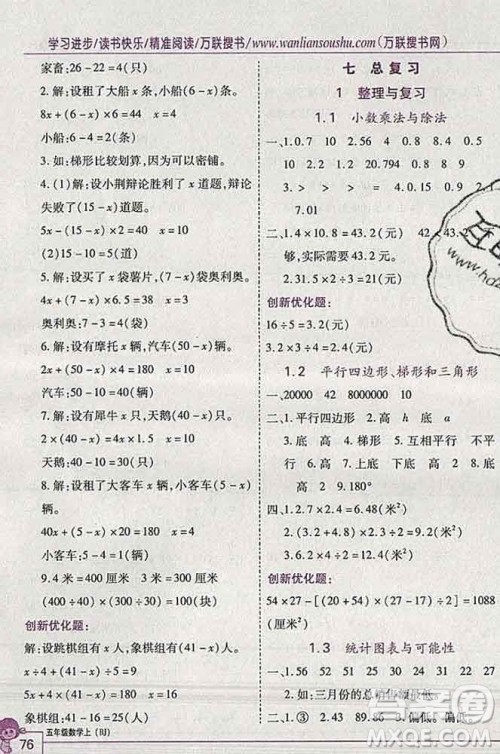 学习进步/读书快乐/精准阅读/万联搜书/www.wanliansoushu.com(万联搜书网)
家畜:26-22=4(只)
2. 解:设租了大船 x 条,小船(10-x)条。
8x+(10-x)×6=72  x=6
小船:6-2=4(条)
3. 如:梯形比较划算,因为可以密铺。
4. (1)解:设小荆辩论胜利了 x 道题,辩论
失败了(15-x)道题。
5x-(15-x)×2=40  x=10
(2)15-10=5(道)
5. 解:设买了 x 袋薯片,(50-x)袋奥利奥。
4x+(50-x)×6=240  x=30
奥利奥:50-30=20(袋)
6. 解:设有摩托 x 辆,汽车(50-x)辆。
2x+(50-x)×4=180  x=10
汽车:50-10=40(辆)
7. 解:设有犀牛 x 只,天鹅(40-x)只。
4x+2×(40-x)=100  x=10
天鹅:40-10=30(只)
8. 解:设租了大客车 x 辆,小客车(6-x)辆。
40x+(6-x)×10=180  x=4
小客车:6-4=2(辆)
9. 4 米=400 厘米  3 米=300 厘米
400×300÷(20×20)=300(块)
创新优化题:
解:设跳棋组有 x 人,象棋组有(41-x)人。
x÷4+(41-x)÷5=9
5x+4×(41-x)=180  x=16
象棋组:(41-16)=25(人)
76 五年级数学上(BJ)
七 总复习
1 整理与复习
1.1 小数乘法与除法
一、1. 0.7  10  4  0.8  0.75  0.4
20  10  2. 3  2  20.794  0.208
3. >  >  >  =  4. 0.62  8
7.01
二、1. 4×10.8=43.2(元)  42<43.2
够,实际需要 43.2 元。
2. 31.5×2÷3=21(元)
创新优化题:
16÷5=3.2(元)
3.2×3÷4=2.4(元)
1.2 平行四边形、梯形和三角形
一、20000  42  80000  8
二、1. 平行四边形  2. 高  高  h  a
3. 底  高  底  高  4. 梯形  平行四边形
高  6.  7. 上底  下底  高
三、1.  2.  3.  4.
四、1. 2×(2.4÷2)=2.4(米²)
2. (3.2+2.4)×2÷2=5.6(米²)
3. 1.8×1.4÷2=1.26(米²)
创新优化题:
54×27-[(20+54)×(27-17)÷2]=
1.3 统计图表与可能性
一、1. 22  66  25  51  23  50
2. 如:三月份的总销额最低。
二、1. (③)  2. 94  3. 偏低。偏低。